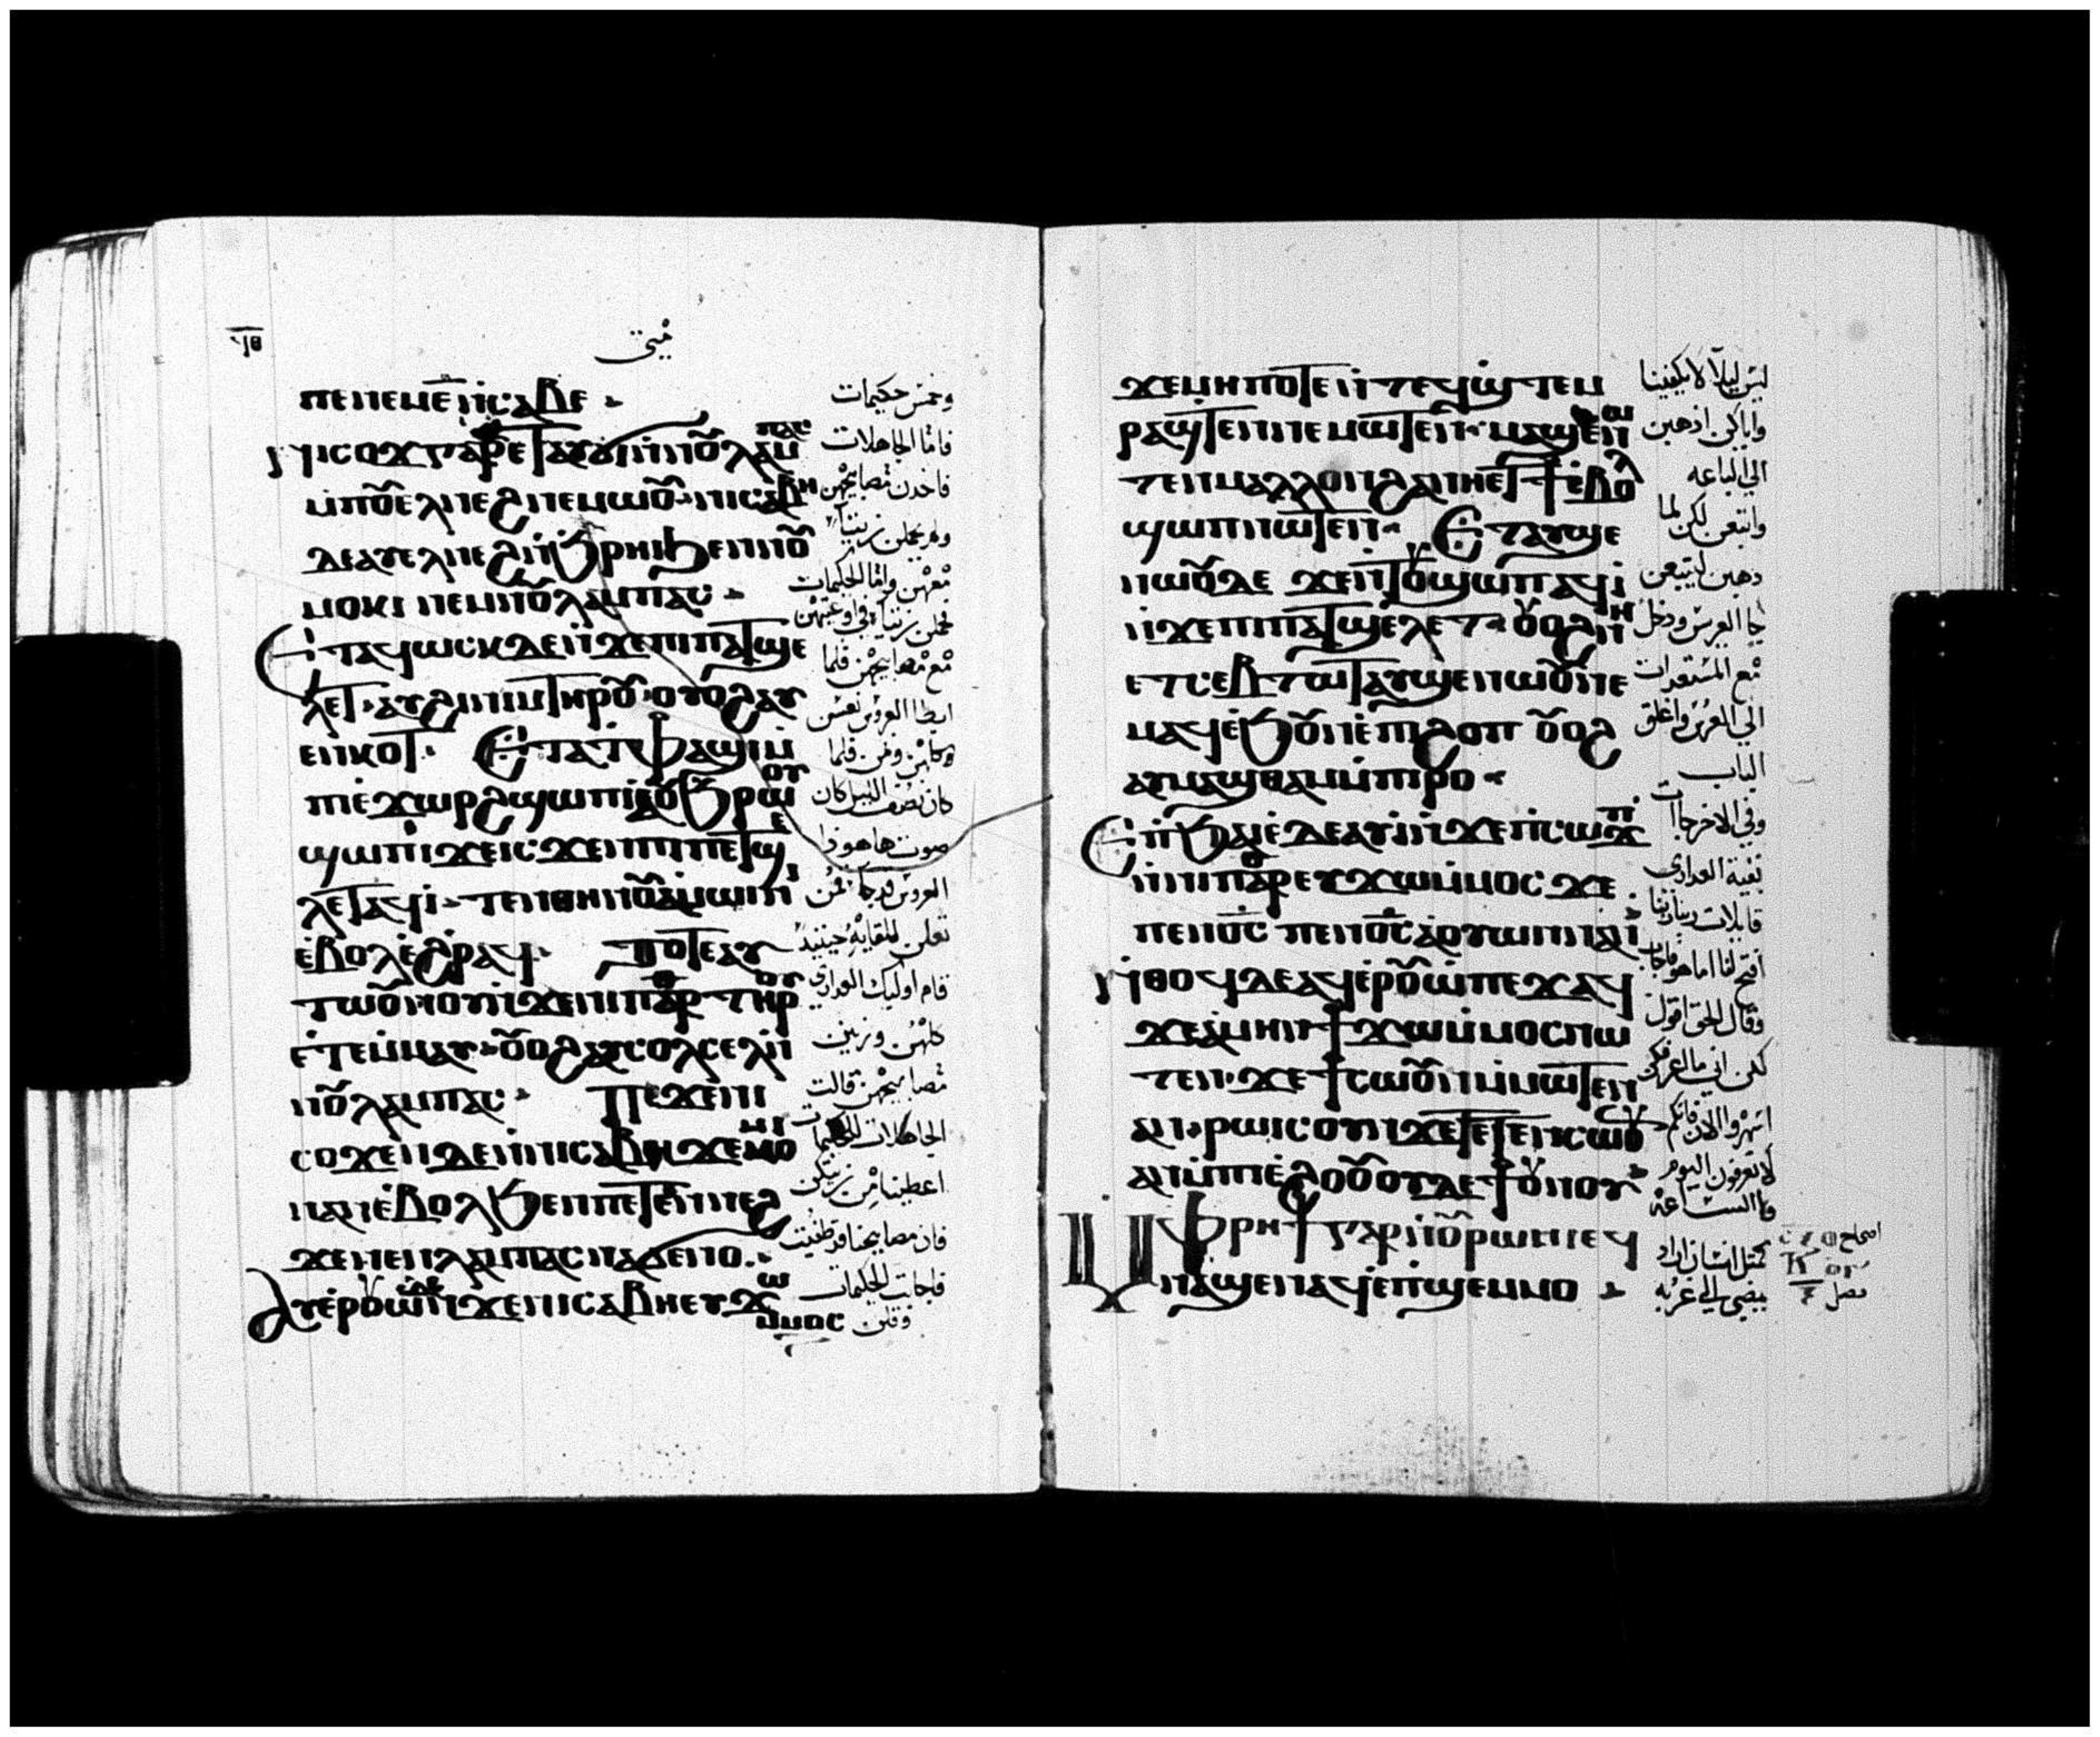 متى
ⲡⲉ ⲛⲉⲙ ⲉ̄ ⲛ̇ⲥⲁⲃⲉ
ⲛⲓⲥⲟϫ ⲅⲁⲣ ⲉⲧⲁⲩϭⲓ ⲛ̇ⲛⲟⲩⲗⲁⲙⲡⲁⲥ
ⲙ̇ⲡⲟⲩⲉⲗ ⲛⲉϩ ⲛⲉⲙⲱⲟⲩ ⲛⲓⲥⲁⲃⲏ
ⲇⲉ ⲁⲩⲉⲗ ⲛⲉϩ ⲛ̇ϧⲣⲏⲓ ϧⲉⲛ ⲛⲟⲩ
ⲙⲟⲕⲓ ⲛⲉⲙ ⲛⲟⲩⲗⲁⲙⲡⲁⲥ
ⲉⲧⲁϥⲱⲥⲕ ⲇⲉ ⲛ̇ϫⲉ ⲡⲓⲡⲁⲧϣⲉ
ⲗⲉⲧ ⲁⲩϩⲓⲛⲓⲙ ⲧⲏⲣⲟⲩ ⲟⲩⲟϩ ⲁⲩ
ⲉⲛⲕⲟⲧ ⲉⲧⲁ ⲧ̇ⲫⲁϣⲓ ⲙ̇
ⲡⲓⲉ̇ϫⲱⲣϩ ϣⲱⲡⲓ ⲓⲥ ⲟⲩϧⲣⲱⲟⲩ
ϣⲱⲡⲓ ϫⲉ ⲓⲥ ϫⲉ ⲡⲓⲡⲁⲧϣⲉ
ⲗⲉⲧ ⲁϥⲓ̇ ⲧⲉⲛ ⲑⲏⲛⲟⲩ ⲁⲙⲱⲓⲛⲓ
ⲉ̇ⲃⲟⲗ ⲉ̇ϩⲣⲁϥ ⲧⲟⲧⲉ ⲁⲩ
ⲧⲱⲟⲩⲛⲟⲩ ⲛ̇ϫⲉ ⲛⲓⲡⲁⲣ ⲧⲏⲣⲟⲩ
ⲉ̇ⲧⲉⲙ̇ⲙⲁⲩ ⲟⲩⲟϩ ⲁⲩⲥⲟⲗⲥⲉⲗ ⲛ̇
ⲛⲟⲩⲗⲁⲙⲡⲁⲥ ⲡⲉϫⲉ ⲛⲓ
ⲥⲟϫ ⲇⲉ ⲛ̇ⲛⲓⲥⲁⲃⲏ ϫⲉ ⲙⲟⲓ
ⲛⲁⲛ ⲉ̇ⲃⲟⲗ ϧⲉⲛ ⲡⲉⲧⲉⲛⲛⲉϩ
ϫⲉ ⲛⲉⲛⲗⲁⲙⲡⲁⲥ ⲛⲁϭⲉⲛⲟ
ⲁⲩⲉⲣⲟⲩⲱ̇ ⲇⲉ ⲛ̇ϫⲉ ⲛⲓⲥⲁⲃⲏ ⲉⲩϫⲱ
ⲙ̇ⲙⲟⲥ
وخمس حكيمات
فاما الجاهلات
فاخدن مصابيحهن
ولم يحملن زيتا
معهن واما الحكيمات
فحملن زيتا في اوعيتهن
مع مصابيحهن فلما
ابطا العروس نعسن
كلهن ونمن فلما
كان نصف الليل كان
صوت ها هوذا
العروس قد جا قمن
تعلن للقايه حينيد
قام اوليك العداري
كلهن وزين
مصابيحهن قالت
الجاهلات للحكيمات
اعطينا من زيتكن
فان مصابيحنا قد طفيت
فاجابت الحكيمات
وقلن
ϫⲉ ⲙⲏⲡⲟⲧⲉ ⲛ̇ⲧⲉϥϣ̇ⲧⲉⲙ
ⲣⲁϣⲧⲉⲛ ⲛⲉⲙⲱⲧⲉⲛ ⲙⲁϣⲉⲛⲱ
ⲧⲉⲛ ⲙⲁⲗⲗⲟⲛ ϩⲁ ⲛⲏ ⲉⲧϯ ⲉ̇ⲃⲟⲗ
ϣⲱⲡ ⲛⲱⲧⲉⲛ ⲉⲧⲁⲩϣⲉ
ⲛⲱⲟⲩ ⲇⲉ ϫⲉ ⲛ̇ⲧⲟⲩϣⲱⲡ ⲁϥⲓ̇
ⲛ̇ϫⲉ ⲡⲓⲡⲁⲧϣⲉⲗⲉⲧ ⲟⲩⲟϩ ⲛⲏ
ⲉⲧⲥⲉⲃⲧⲱⲧ ⲁⲩϣⲉⲛⲱⲟⲩ ⲛⲉ
ⲙⲁϥ ⲉ̇ϧⲟⲩⲛ ⲉ̇ⲡⲓϩⲟⲡ ⲟⲩⲟϩ
ⲁⲩⲙⲁϣⲑⲁⲙ ⲙ̇ⲡⲓⲣⲟ
ⲉⲡ̇ϧⲁⲉ̇ ⲇⲉ ⲁⲩⲓ̇ ⲛ̇ϫⲉ ⲡ̇ⲥⲱϫⲡ
ⲛ̇ⲛⲓⲡⲁⲣ ⲉⲩϫⲱ ⲙ̇ⲙⲟⲥ ϫⲉ
ⲡⲉⲛⲟ̅ⲥ̅ ⲡⲉⲛⲟ̅ⲥ̅ ⲁⲟⲩⲱⲛ ⲛⲁⲛ
ⲛ̇ⲑⲟϥ ⲇⲉ ⲁϥⲉⲣⲟⲩⲱ̇ ⲡⲉϫⲁϥ
ϫⲉ ⲁⲙⲏⲛ ϯϫⲱ ⲙ̇ⲙⲟⲥ ⲛⲱ
ⲧⲉⲛ ϫⲉ ϯⲥⲱⲟⲩⲛ ⲙ̇ⲙⲱⲧⲉⲛ
ⲁⲛ ⲣⲱⲓⲥ ⲟⲩⲛ ϫⲉ ⲧⲉⲧⲉⲛⲥⲱⲟⲩⲛ
ⲁⲛ ⲙ̇ⲡⲓⲉ̇ϩⲟⲟⲩ ⲟⲩⲇⲉ ϯⲟⲩⲛⲟⲩ
ⲙ̇ⲫⲣⲏϯ ⲅⲁⲣ ⲛ̇ⲟⲩⲣⲱⲙⲓ ⲉϥ
ⲛⲁϣⲉⲛⲁϥ ⲉⲡ̇ϣⲉⲙⲙⲟ
ليس ليلا لا يكفينا
واياكن ادهبن
الي الباعه
وابتعن لكن لما
دهبن ليبتعن
جا العريس ودخل
مع المستعدات
الي العرس واغلق
الباب
وفي الاخر جاات
بقية العداري
قايلات ربنا ربنا
افتح لنا اما هو فاجاب
وقال الحق اقول
لكن اني ما اعرفكن
اسهروا الان فانكم
لا تعرفون اليوم
ولا الساعه
كمثل انسان اراد
يمضي الي غربه
اصحاح
فصل